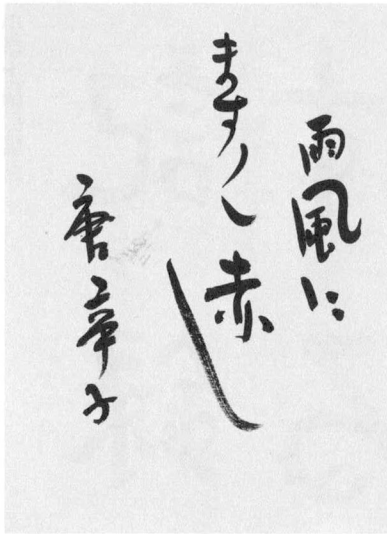 雨風に
ます〳〵赤し
唐辛子